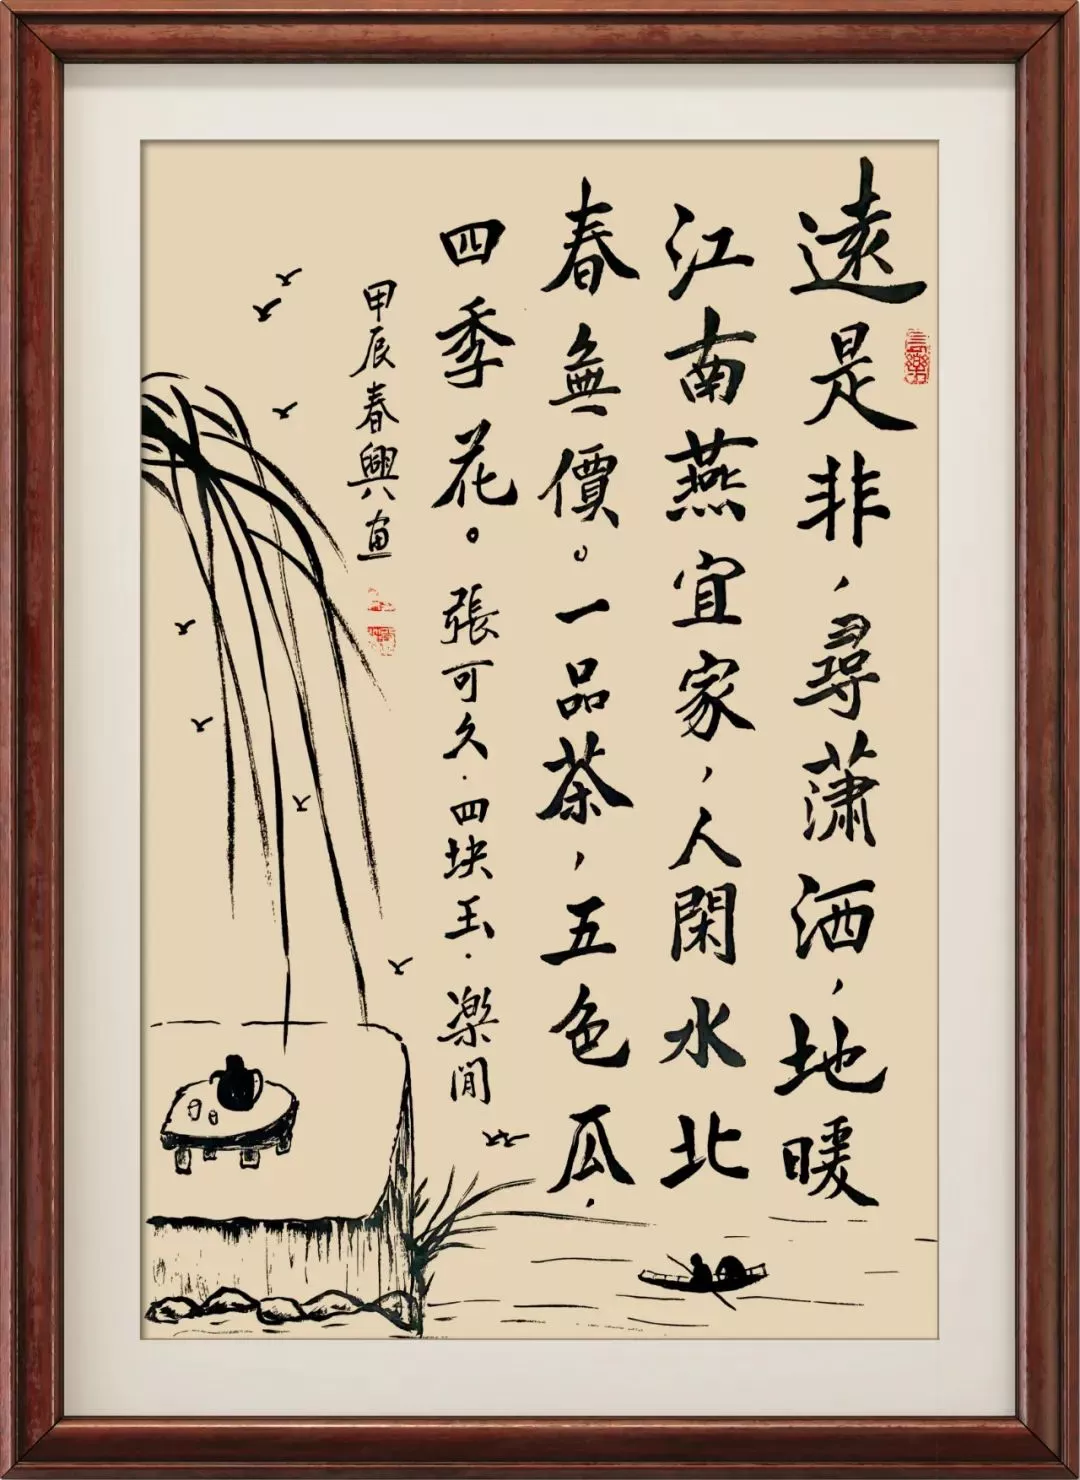 遠是非，尋蕭洒，地暖
江南燕宜家，人閑水北
春無價。一品茶，五色瓜，
四季花。張可久·四块玉·樂閒
甲辰春興画